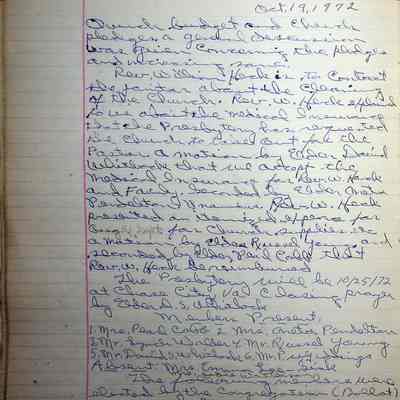 Oct, 19, 1972
Church budget and Church
pledges a general discussion
was given concerning the pledges
and increasing same.
Rev. William Hork is to Contact
the janitor about the Cleaning
of the Church. Rev. W. Hork explained
to us about the medical Insurance
that the Presbytery has requested
the Church to the
Pastor A motion by Elder David
Whitlock that we accept the
medical Insurance for Rev. W. Hork
and Family. Seconded by Elder
Pendelton Rev. W. Hork
presented an itemized expense for
for Church supplies etc
a motion by Elder Russel Young and
seconded by Elder Pearl Cobb that
Rev. W. Hork be reimbursed
The Presbytery will be 10/25/72
at Chase City Va. Closing prayer
by Elder
Members Present,
1. Mrs. Pearl Cobb 2. Mrs. Pendelton
3. Mr. Walker 4. Mr. Russel Young
5. Mr. David Whitlock 6. Mr.
Absent. Mrs.
The following members were
elected by the Congregation (Ballot)